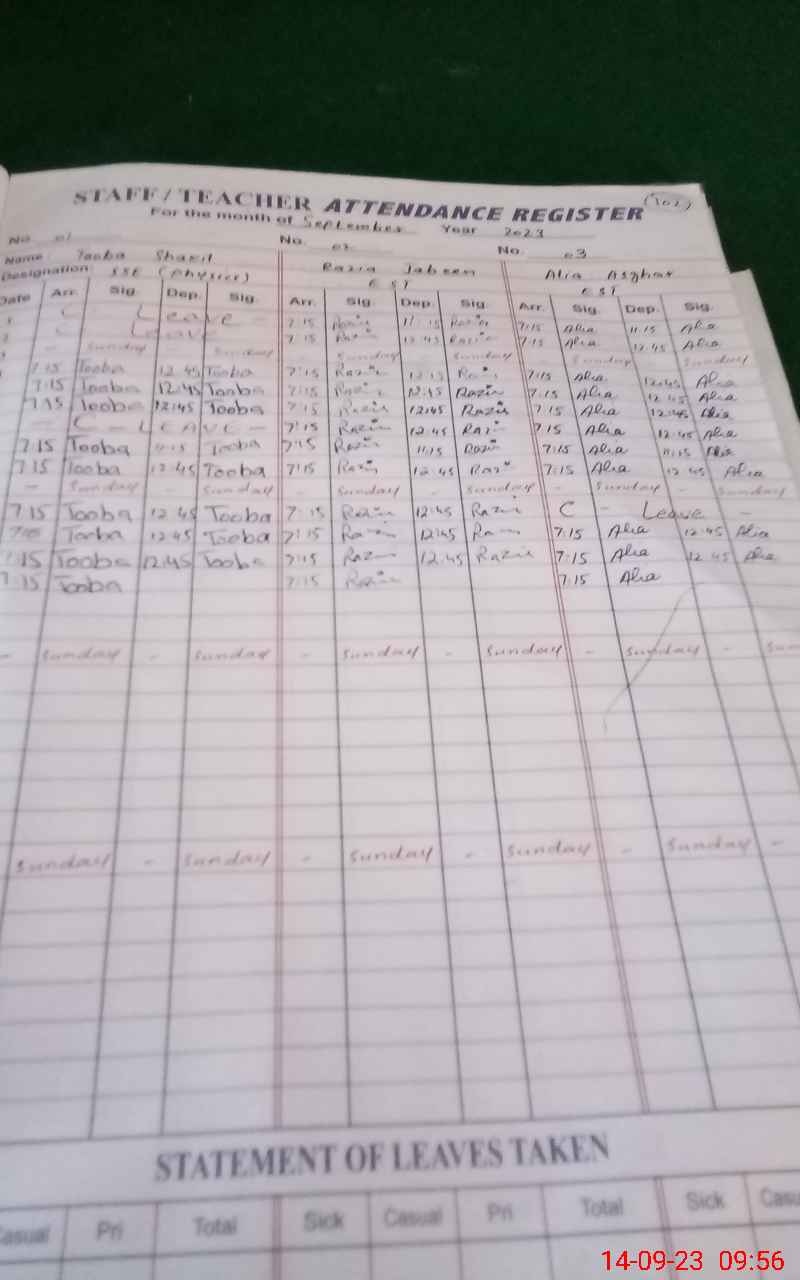 (102)
STAFF / TEACHER ATTENDANCE REGISTER
For the month of September Year 2023
No 01 No. 02 No. 03
Name Tooba Razia Jabeen Alia Asghar
Designation SSE (Physics) EST EST
Date Arr. Sig. Dep. Sig. Arr. Sig. Dep. Sig. Arr. Sig. Dep. Sig.
C Leave - 7:15 Razia 11:15 Razia 7:15 Alia 11:15 Alia
Leave 7:15 12:45 Razia 7:15 Alia 12:45 Alia
- Sunday Sunday Sunday Sunday Sunday Sunday
7:15 Tooba 12:45 Tooba 7:15 Razia 7:15 Alia 12:45 Alia
7:15 Tooba 12:45 Tooba 7:15 Razia 12:45 Razia 7:15 Alia 12:45 Alia
7:15 Tooba 12:45 Tooba 7:15 Razia 12:45 Razia 7:15 Alia 12:45 Alia
- C - LEAVE - 7:15 Razia 12:45 Razi 7:15 Alia 12:45 Alia
7:15 Tooba 11:15 Tooba 7:15 Razi 11:15 Razi 7:15 Alia 11:15 Alia
7:15 Tooba 12:45 Tooba 7:15 Razi 12:45 Razi 7:15 Alia 12:45 Alia
- Sunday - Sunday - Sunday - Sunday - Sunday - Sunday
7:15 Tooba 12:45 Tooba 7:15 Razi 12:45 Razi C - Leave -
7:15 Tooba 12:45 Tooba 7:15 12:45 7:15 Alia 12:45 Alia
7:15 Tooba 12:45 Tooba 7:15 Razi 12:45 Razia 7:15 Alia 12:45 Alia
7:15 Tooba 7:15 Razia 7:15 Alia
- Sunday - Sunday - Sunday - Sunday - Sunday -
Sunday - Sunday - Sunday - Sunday - Sunday -
STATEMENT OF LEAVES TAKEN
Casual Pri Total Sick Casual Pri Total Sick
14-09-23 09:56